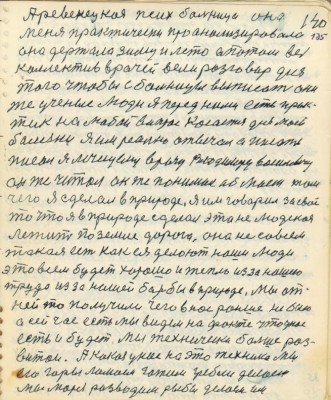 Аревенецкая псих болница она 120
меня практически проанализировала 135
она держала зиму и лето а потом вех
коллектив врачей вели розговар для
того чтобы с болницы выписать они
же ученые люди я перед ними есть прак-
тик на любой вапрос касается для моей
болезни я им реално отвечал а писать
писал я лечащему врачу
он же читал он же понимае об моем том
чего я сделал в природе, я им говорил за свое
то что я в природе сделал эта не людская
лежит по земле дорога, она не совсем
такая ест как ея делают наши люди
это всем будет хорошо и тепло из за нашего
труда из за нашей барбы в природе, мы от-
ней то получим чего в ное ранше не было
а сейчас есть мы видим на факте что уже
есть и будет. Мы технически болше роз-
витои. А какая у нас на это техника мы
то гары ламаем гажии гребли делаем
мы моря разводим рыбы делаем им